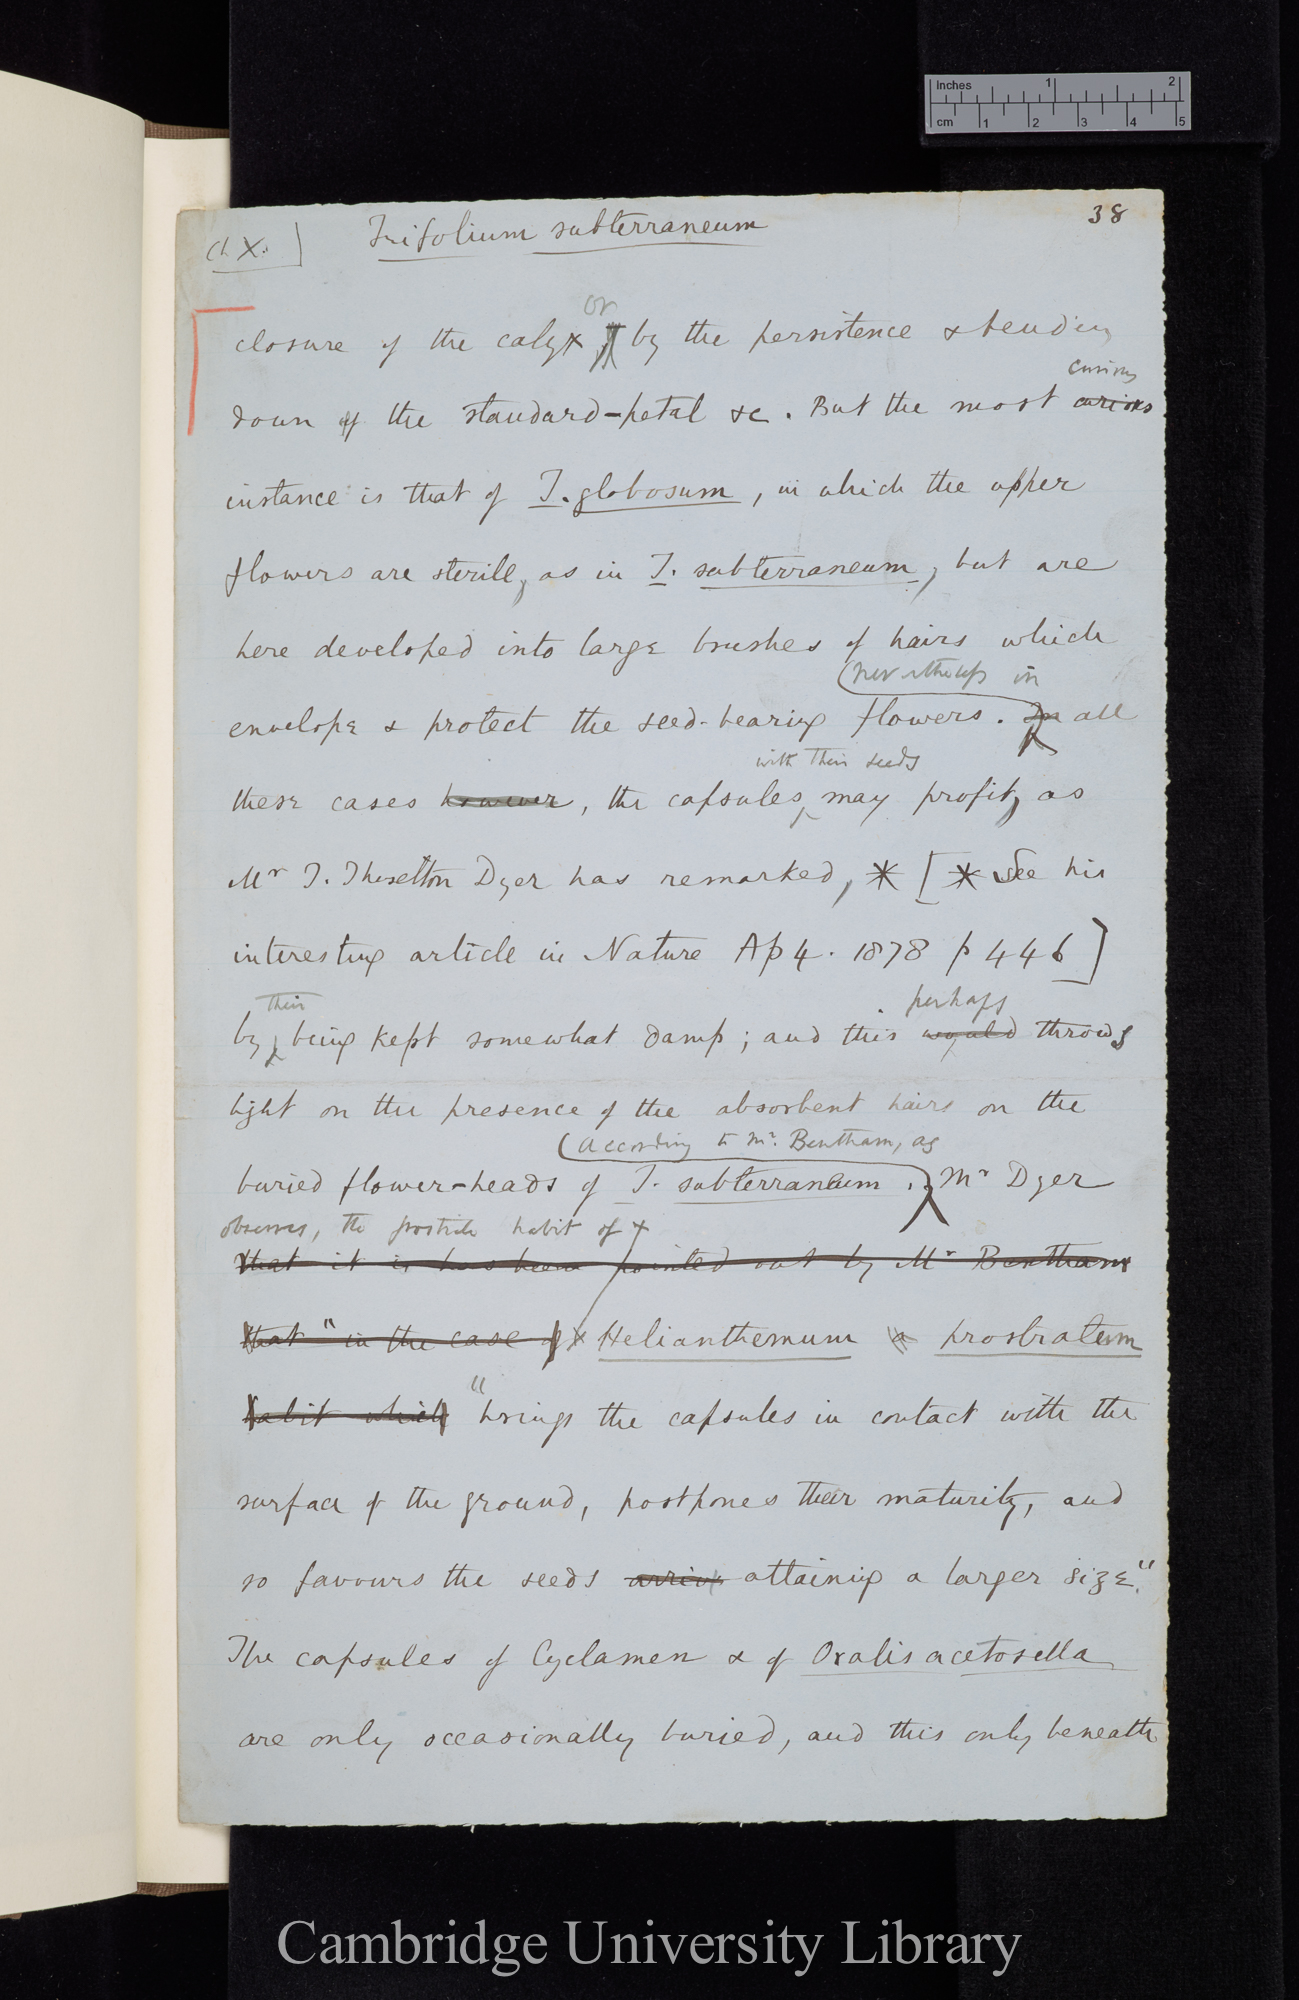 Inches 1 2
cm 1 2 3 4 5
38
Ch X.
Trifolium subterraneum
or
closure of the calyx, by the persistence & bending
curious
down of the standard-petal &c. But the most curious
instance is that of T. globosum, in which the upper
flowers are sterile, as in T. subterraneum, but are
here developed into large brushes of hairs which
nevertheless in
envelope & protect the seed-bearing flowers. In all
with their seeds
these cases however, the capsules, may profit, as
Mr T. Thiselton Dyer has remarked, * [* See his
interesting article in Nature Ap 4. 1878 p 446]
their perhaps
by being kept somewhat damp; and this would throws
light on the presence of the absorbent hairs on the
(according to Mr. Bentham, as
buried flower-heads of T. subterraneum. Mr Dyer
observes, the prostrate habit of
that it is has been pointed out by Mr Bentham
that "in the case of Helianthemum prostratum
habit which "brings the capsules in contact with the
surface of the ground, postpones their maturity, and
so favours the seeds attaining a larger size."
The capsules of Cyclamen & of Oxalis acetosella
are only occasionally buried, and this only beneath
Cambridge University Library